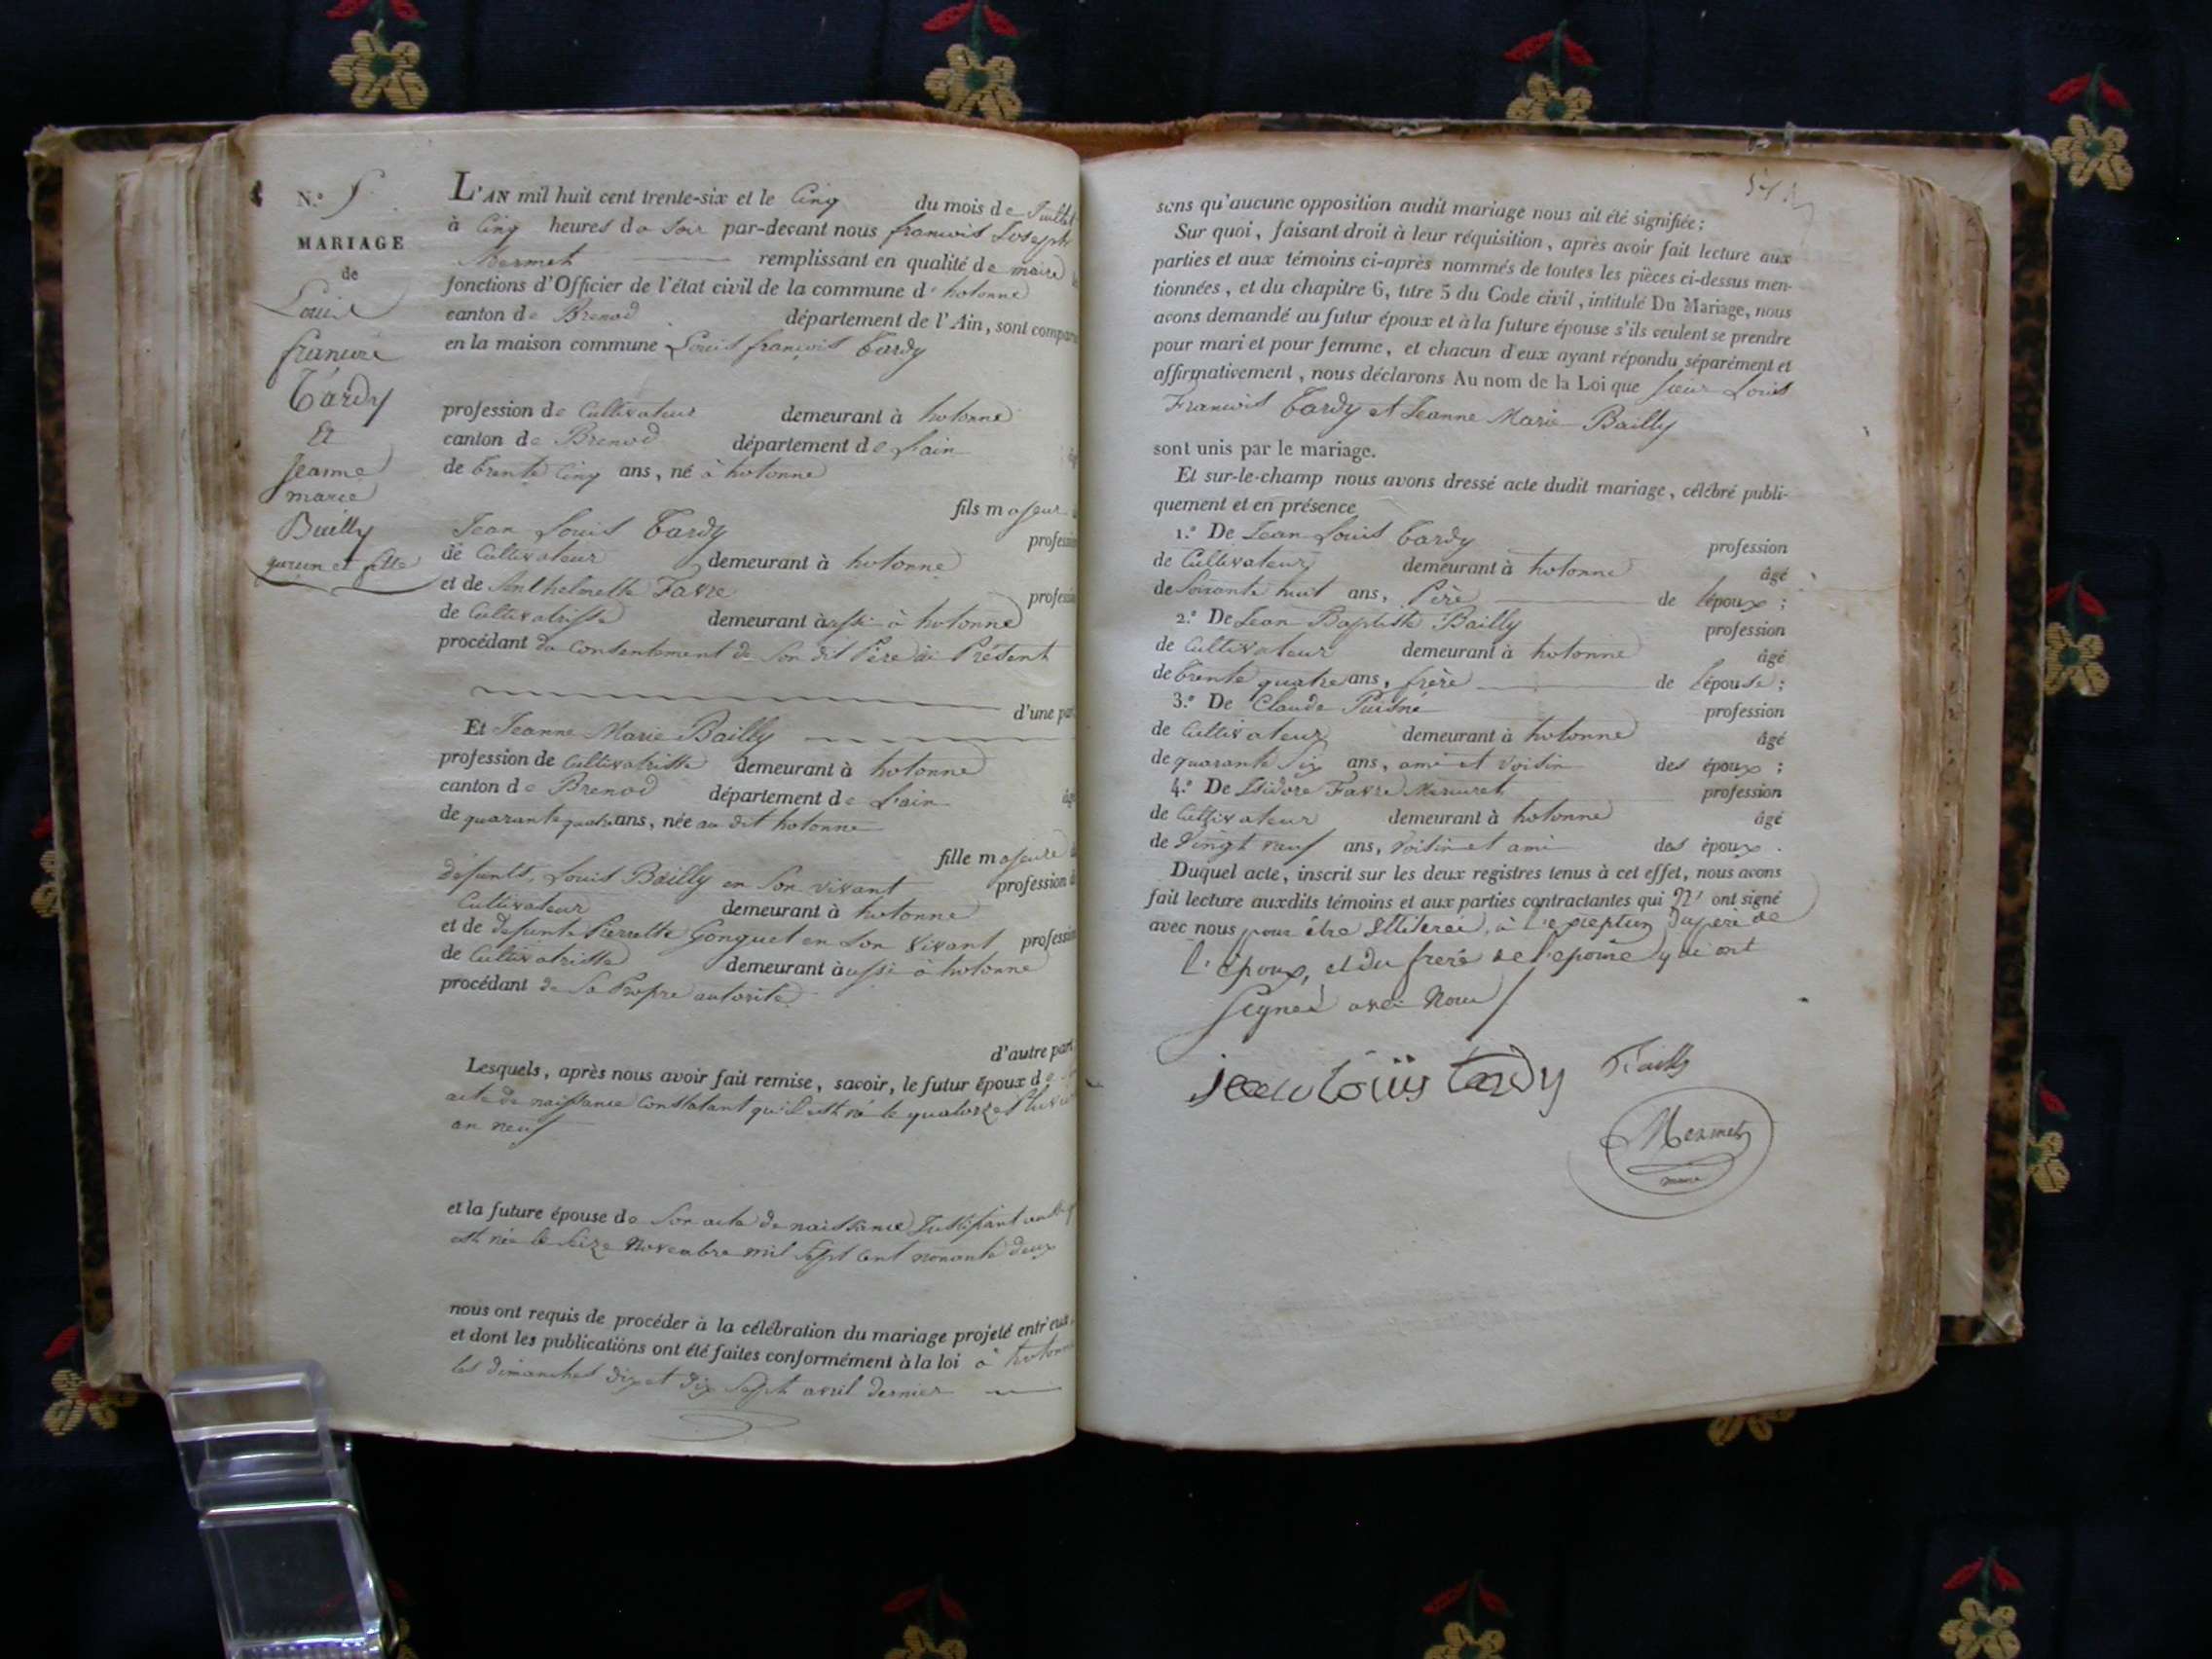 N.º 5
MARIAGE
de
Louis
françois
Tardy
Et
Jeanne
marie
Bailly
garçon et fille
L'AN mil huit cent trente-six et le Cinq du mois de Juillet
à Cinq heures du Soir par-devant nous francois Joseph
Mermet remplissant en qualité de maire
fonctions d'Officier de l'état civil de la commune d'hotonne
canton de Brenod département de l'Ain, sont comparu
en la maison commune Louis françois Tardy
profession de Cultivateur demeurant à hotonne
canton de Brenod département de L'ain
de trente Cinq ans, né à hotonne
fils majeur
Jean Louis Tardy profession
de Cultivateur demeurant à hotonne
et de Anthelmette Favre profession
de Cultivatrisse demeurant aussi à hotonne
procédant du Consentement de Son dit Père ici Présent
d'une part
Et Jeanne Marie Bailly
profession de Cultivatrisse demeurant à hotonne
canton de Brenod département de L'ain
de quarante quatre ans, née au dit hotonne
fille majeure
défunts, Louis Bailly en Son vivant profession d
Cultivateur demeurant à hotonne
et de defunte Pierrette Gonguet en Son Vivant profession
de Cultivatrisse demeurant aussi à hotonne
procédant de Sa Propre autorité
d'autre part
Lesquels, après nous avoir fait remise, savoir, le futur époux de
acte de naissance Constatant qu'il est né le quatorze
an neuf
et la future épouse de Son acte de naissance Justifiant
est née le Seize Novembre mil Sept Cent nonante deux
nous ont requis de procéder à la célébration du mariage projeté entr'eux,
et dont les publications ont été faites conformément à la loi à hotonne
les dimanches dix et dix Sept avril dernier
sans qu'aucune opposition audit mariage nous ait été signifiée;
Sur quoi, faisant droit à leur réquisition, après avoir fait lecture aux
parties et aux témoins ci-après nommés de toutes les pièces ci-dessus men-
tionnées, et du chapitre 6, titre 5 du Code civil, intitulé Du Mariage, nous
avons demandé au futur époux et à la future épouse s'ils veulent se prendre
pour mari et pour femme, et chacun d'eux ayant répondu séparément et
affirmativement, nous déclarons Au nom de la Loi que Louis
Francois Tardy et Jeanne Marie Bailly
sont unis par le mariage.
Et sur-le-champ nous avons dressé acte dudit mariage, célébré publi-
quement et en présence
1.º De Jean Louis Tardy profession
de Cultivateur demeurant à hotonne âgé
de Soixante huit ans, Père de l'époux;
2.º De Jean Baptiste Bailly profession
de Cultivateur demeurant à hotonne âgé
de trente quatre ans, frère de l'épouse;
3.º De Claude Puisné profession
de Cultivateur demeurant à hotonne âgé
de quarante Six ans, ami et Voisin des époux;
4.º De Isidore Favre profession
de Cultivateur demeurant à hotonne âgé
de Vingt neuf ans, Voisin et ami des époux.
Duquel acte, inscrit sur les deux registres tenus à cet effet, nous avons
fait lecture auxdits témoins et aux parties contractantes qui N' ont signé
avec nous pour être Illiterei, à l'exeption du pere de
l'époux, et du frere de l'epouse qui ont
Signés avec Nous
jean loüis tardy Bailly
Mermet
maire